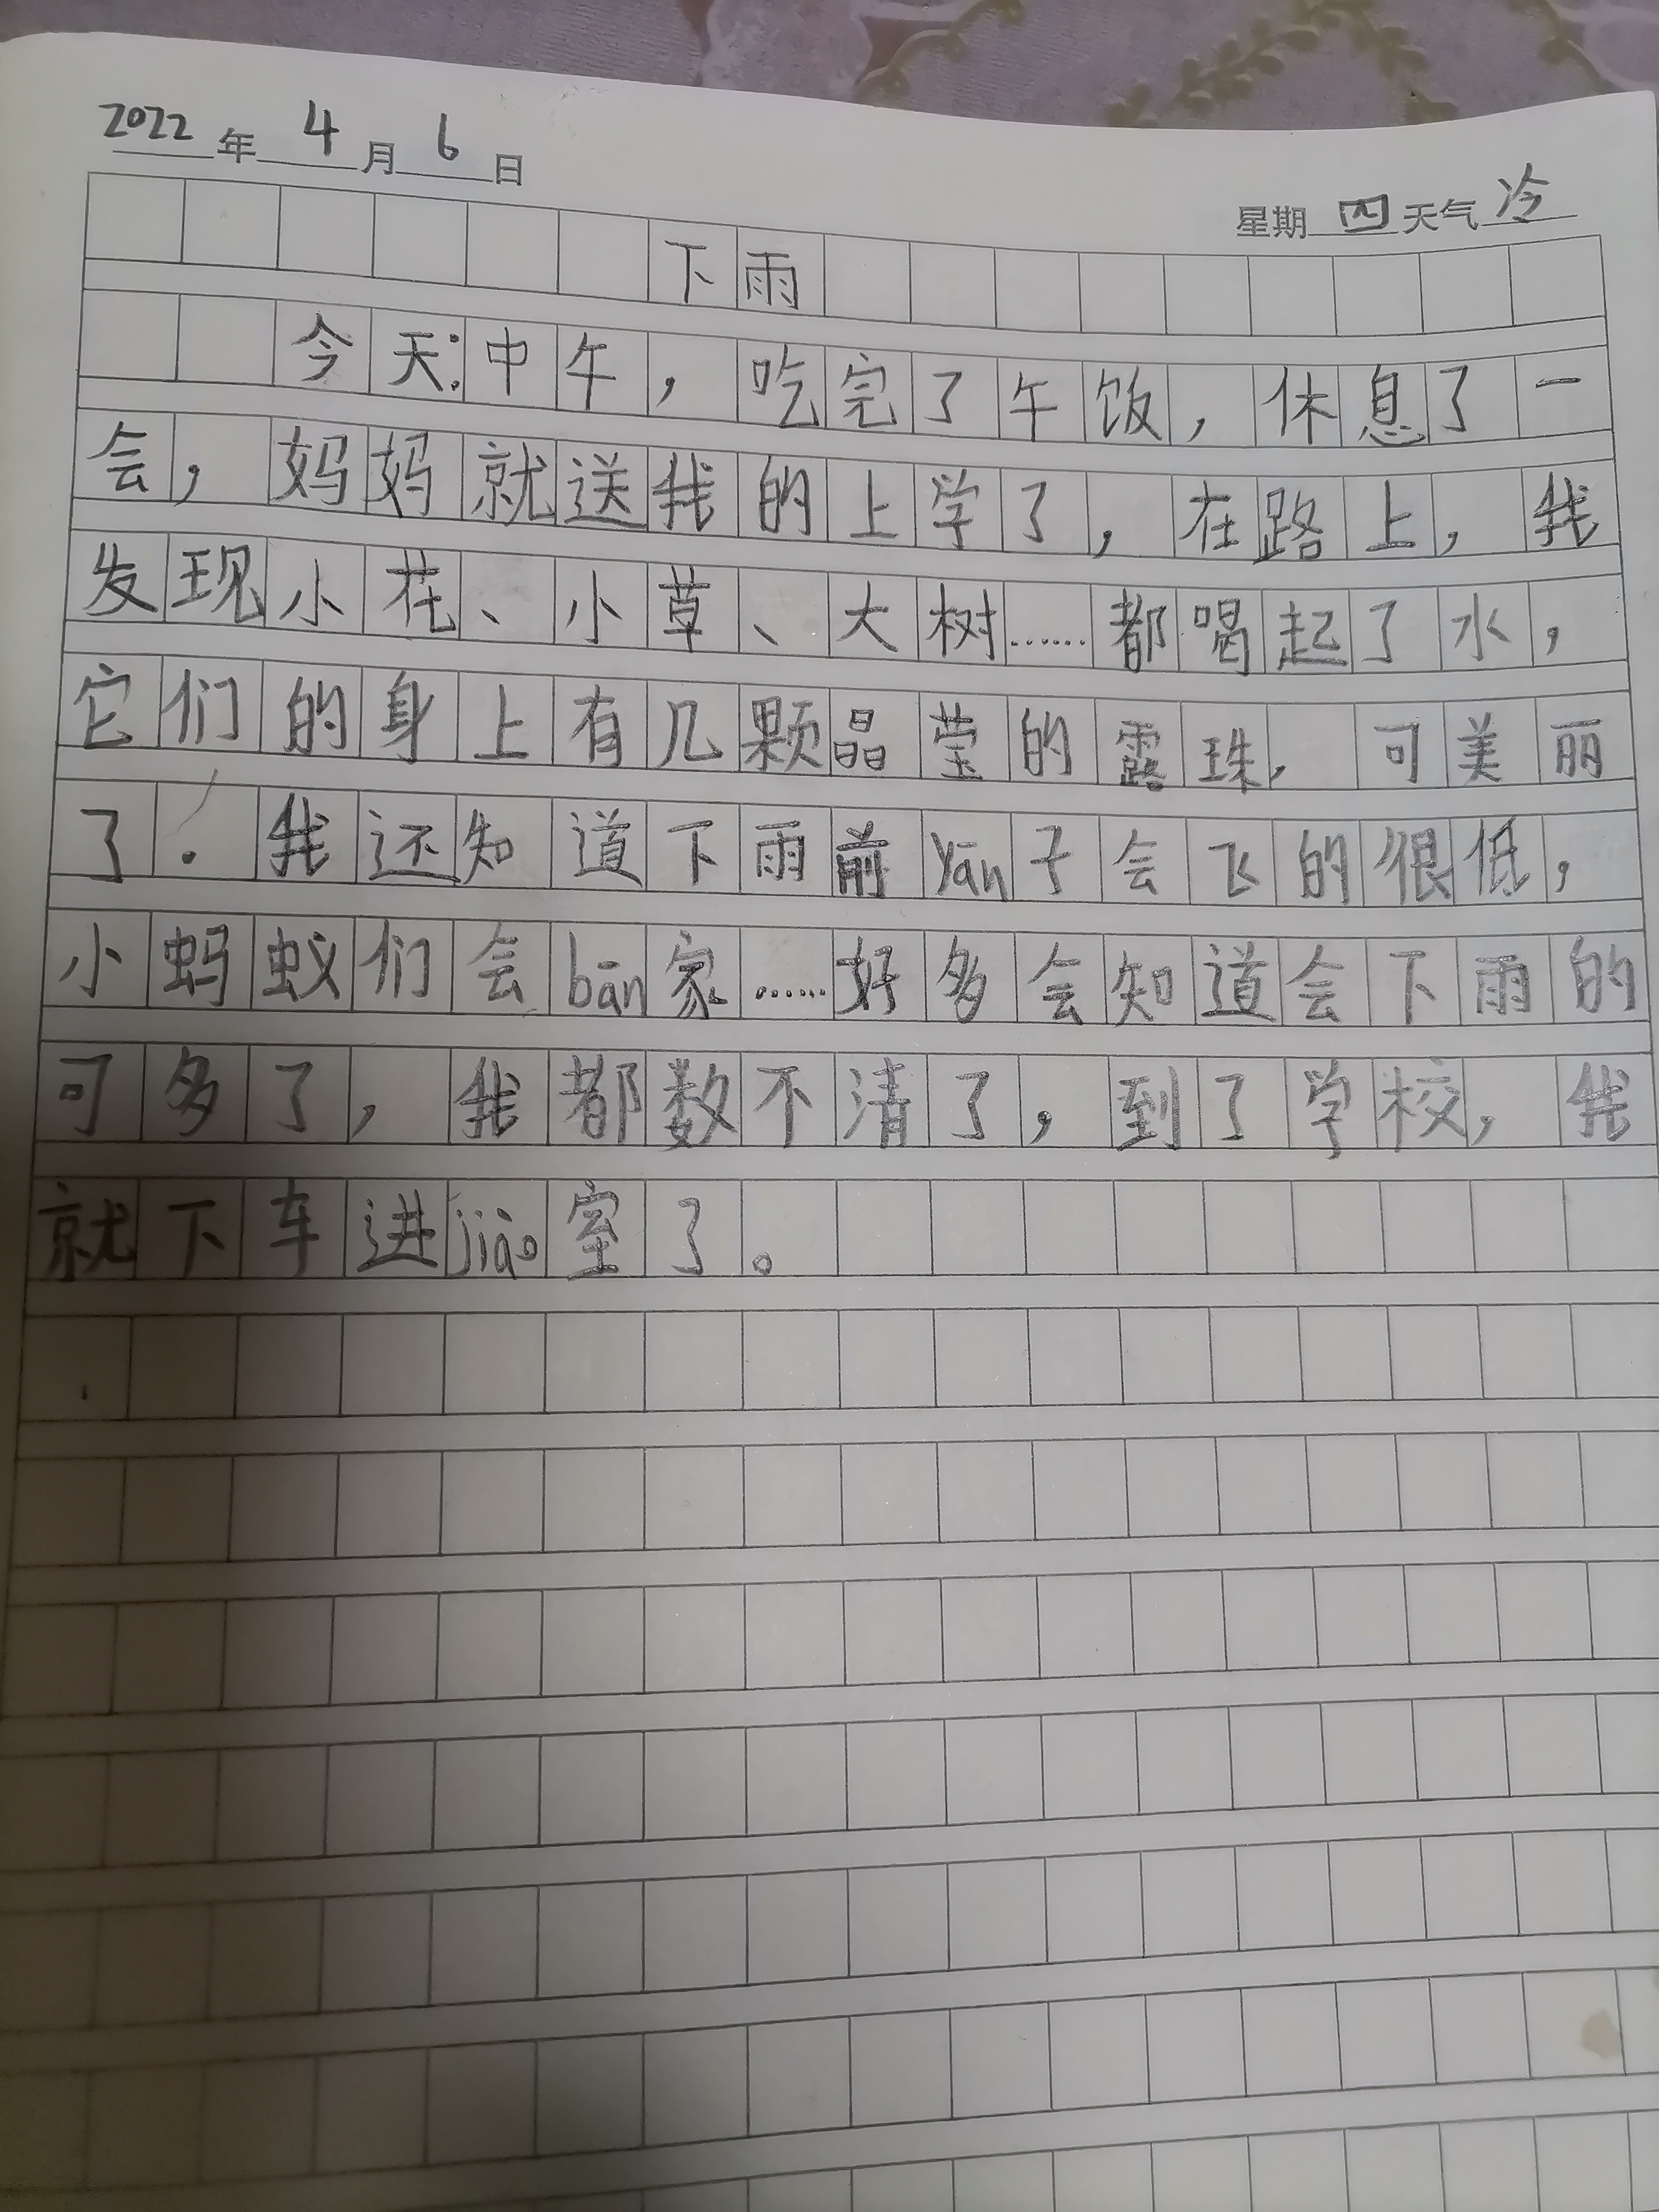 2022年4月6日
星期四天气冷
下雨
今天:中午，吃完了午饭，休息了一
会，妈妈就送我的上学了，在路上，我
发现小花、小草、大树……都喝起了水，
它们的身上有几颗晶莹的露珠，可美丽
了.我还知道下雨前yān子会飞的很低，
小蚂蚁们会bān家……好多会知道会下雨的
可多了，我都数不清了，到了学校，我
就下车进jiāo室了。